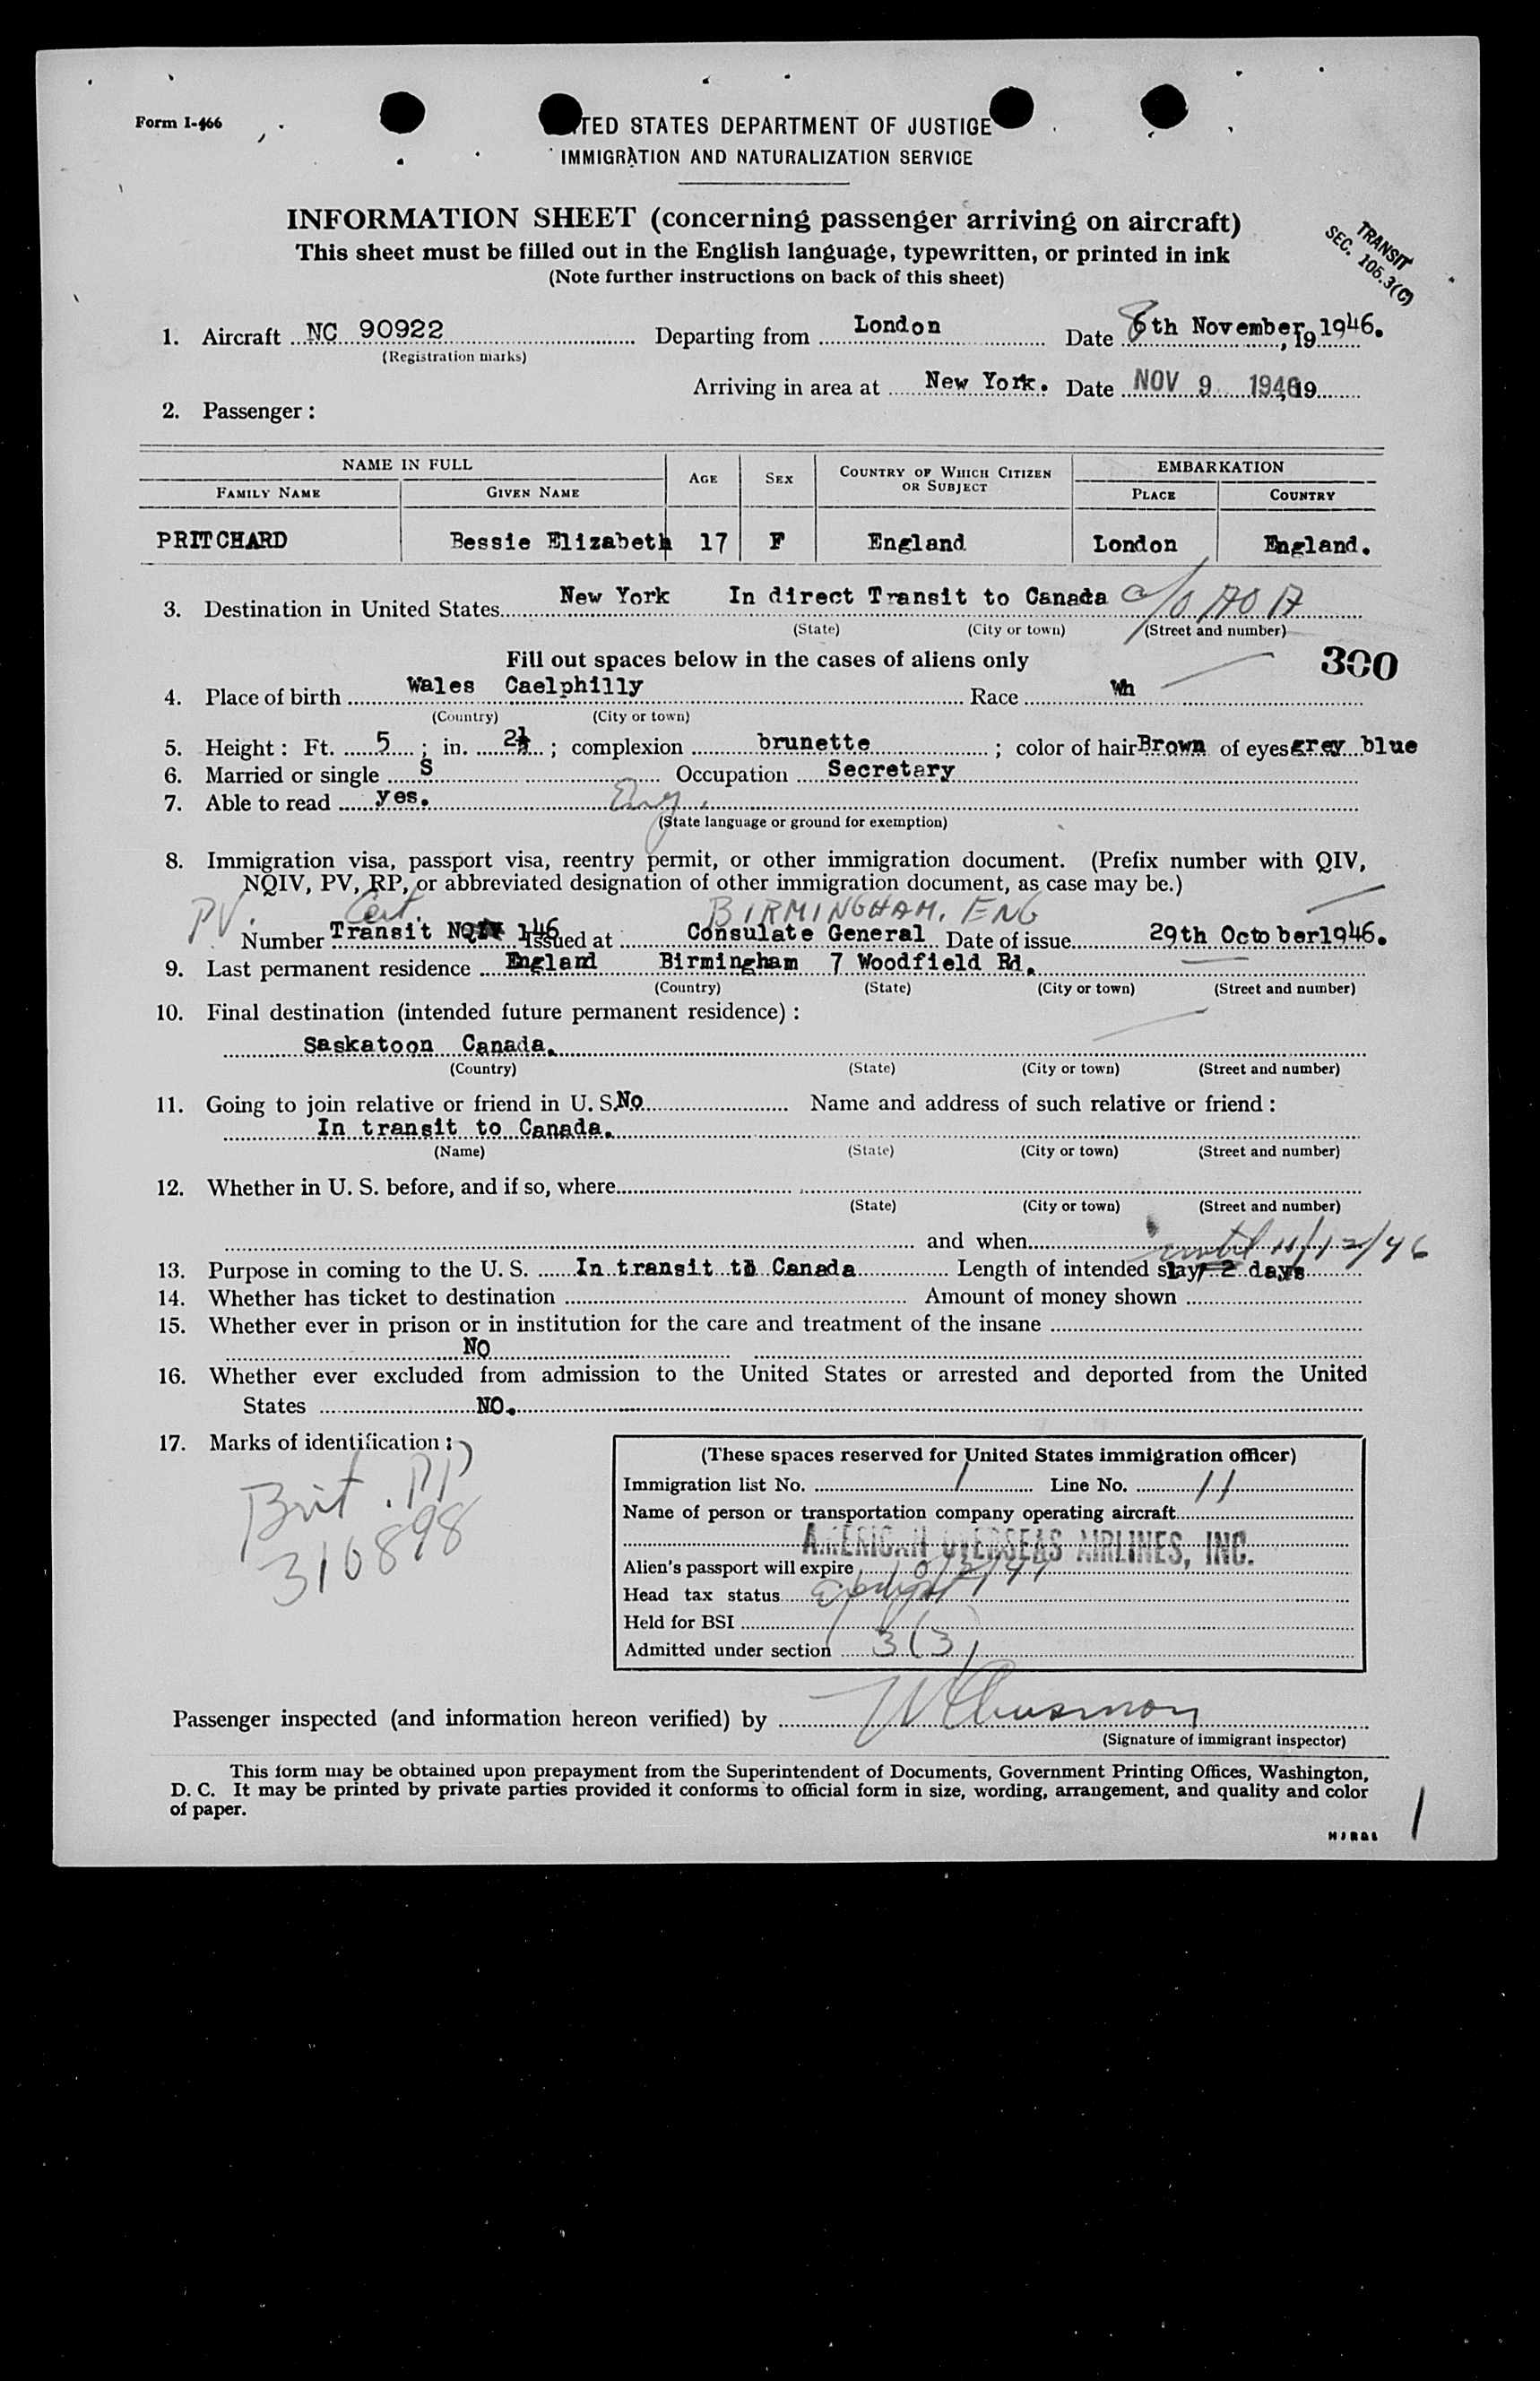 Form I-466
TED STATES DEPARTMENT OF JUSTICE
IMMIGRATION AND NATURALIZATION SERVICE
INFORMATION SHEET (concerning passenger arriving on aircraft)
This sheet must be filled out in the English language, typewritten, or printed in ink
(Note further instructions on back of this sheet)
TRANSIT
SEC. 105.3(C)
1. Aircraft NC 90922 Departing from London Date 8th November, 19 1946.
(Registration marks)
Arriving in area at New York. Date NOV 9 1946 19
2. Passenger :
NAME IN FULL AGE SEX COUNTRY OF WHICH CITIZEN OR SUBJECT EMBARKATION
FAMILY NAME GIVEN NAME PLACE COUNTRY
PRITCHARD Bessie Elizabeth 17 F England London England.
3. Destination in United States New York In direct Transit to Canada c/o AOA
(State) (City or town) (Street and number)
Fill out spaces below in the cases of aliens only 300
4. Place of birth Wales Caelphilly Race Wh
(Country) (City or town)
5. Height : Ft. 5 ; in. 2½ ; complexion brunette ; color of hair Brown of eyes grey blue
6. Married or single S Occupation Secretary
7. Able to read yes. Eng.
(State language or ground for exemption)
8. Immigration visa, passport visa, reentry permit, or other immigration document. (Prefix number with QIV,
NQIV, PV, RP, or abbreviated designation of other immigration document, as case may be.)
PV. Cert. BIRMINGHAM, ENG
Number Transit 146 Issued at Consulate General Date of issue 29th October1946.
9. Last permanent residence England Birmingham 7 Woodfield Rd.
(Country) (State) (City or town) (Street and number)
10. Final destination (intended future permanent residence) :
Saskatoon Canada.
(Country) (State) (City or town) (Street and number)
11. Going to join relative or friend in U. S. No Name and address of such relative or friend :
In transit to Canada.
(Name) (State) (City or town) (Street and number)
12. Whether in U. S. before, and if so, where
(State) (City or town) (Street and number)
and when
until 11/12/46
13. Purpose in coming to the U. S. In transit to Canada Length of intended stay 2 days
14. Whether has ticket to destination Amount of money shown
15. Whether ever in prison or in institution for the care and treatment of the insane
NO
16. Whether ever excluded from admission to the United States or arrested and deported from the United
States NO.
17. Marks of identification :
Brit. PP
310898
(These spaces reserved for United States immigration officer)
Immigration list No. 1 Line No. 11
Name of person or transportation company operating aircraft
AMERICAN OVERSEAS AIRLINES, INC.
Alien's passport will expire
Head tax status
Held for BSI
Admitted under section 3(3)
Passenger inspected (and information hereon verified) by
(Signature of immigrant inspector)
This form may be obtained upon prepayment from the Superintendent of Documents, Government Printing Offices, Washington,
D. C. It may be printed by private parties provided it conforms to official form in size, wording, arrangement, and quality and color
of paper.
1